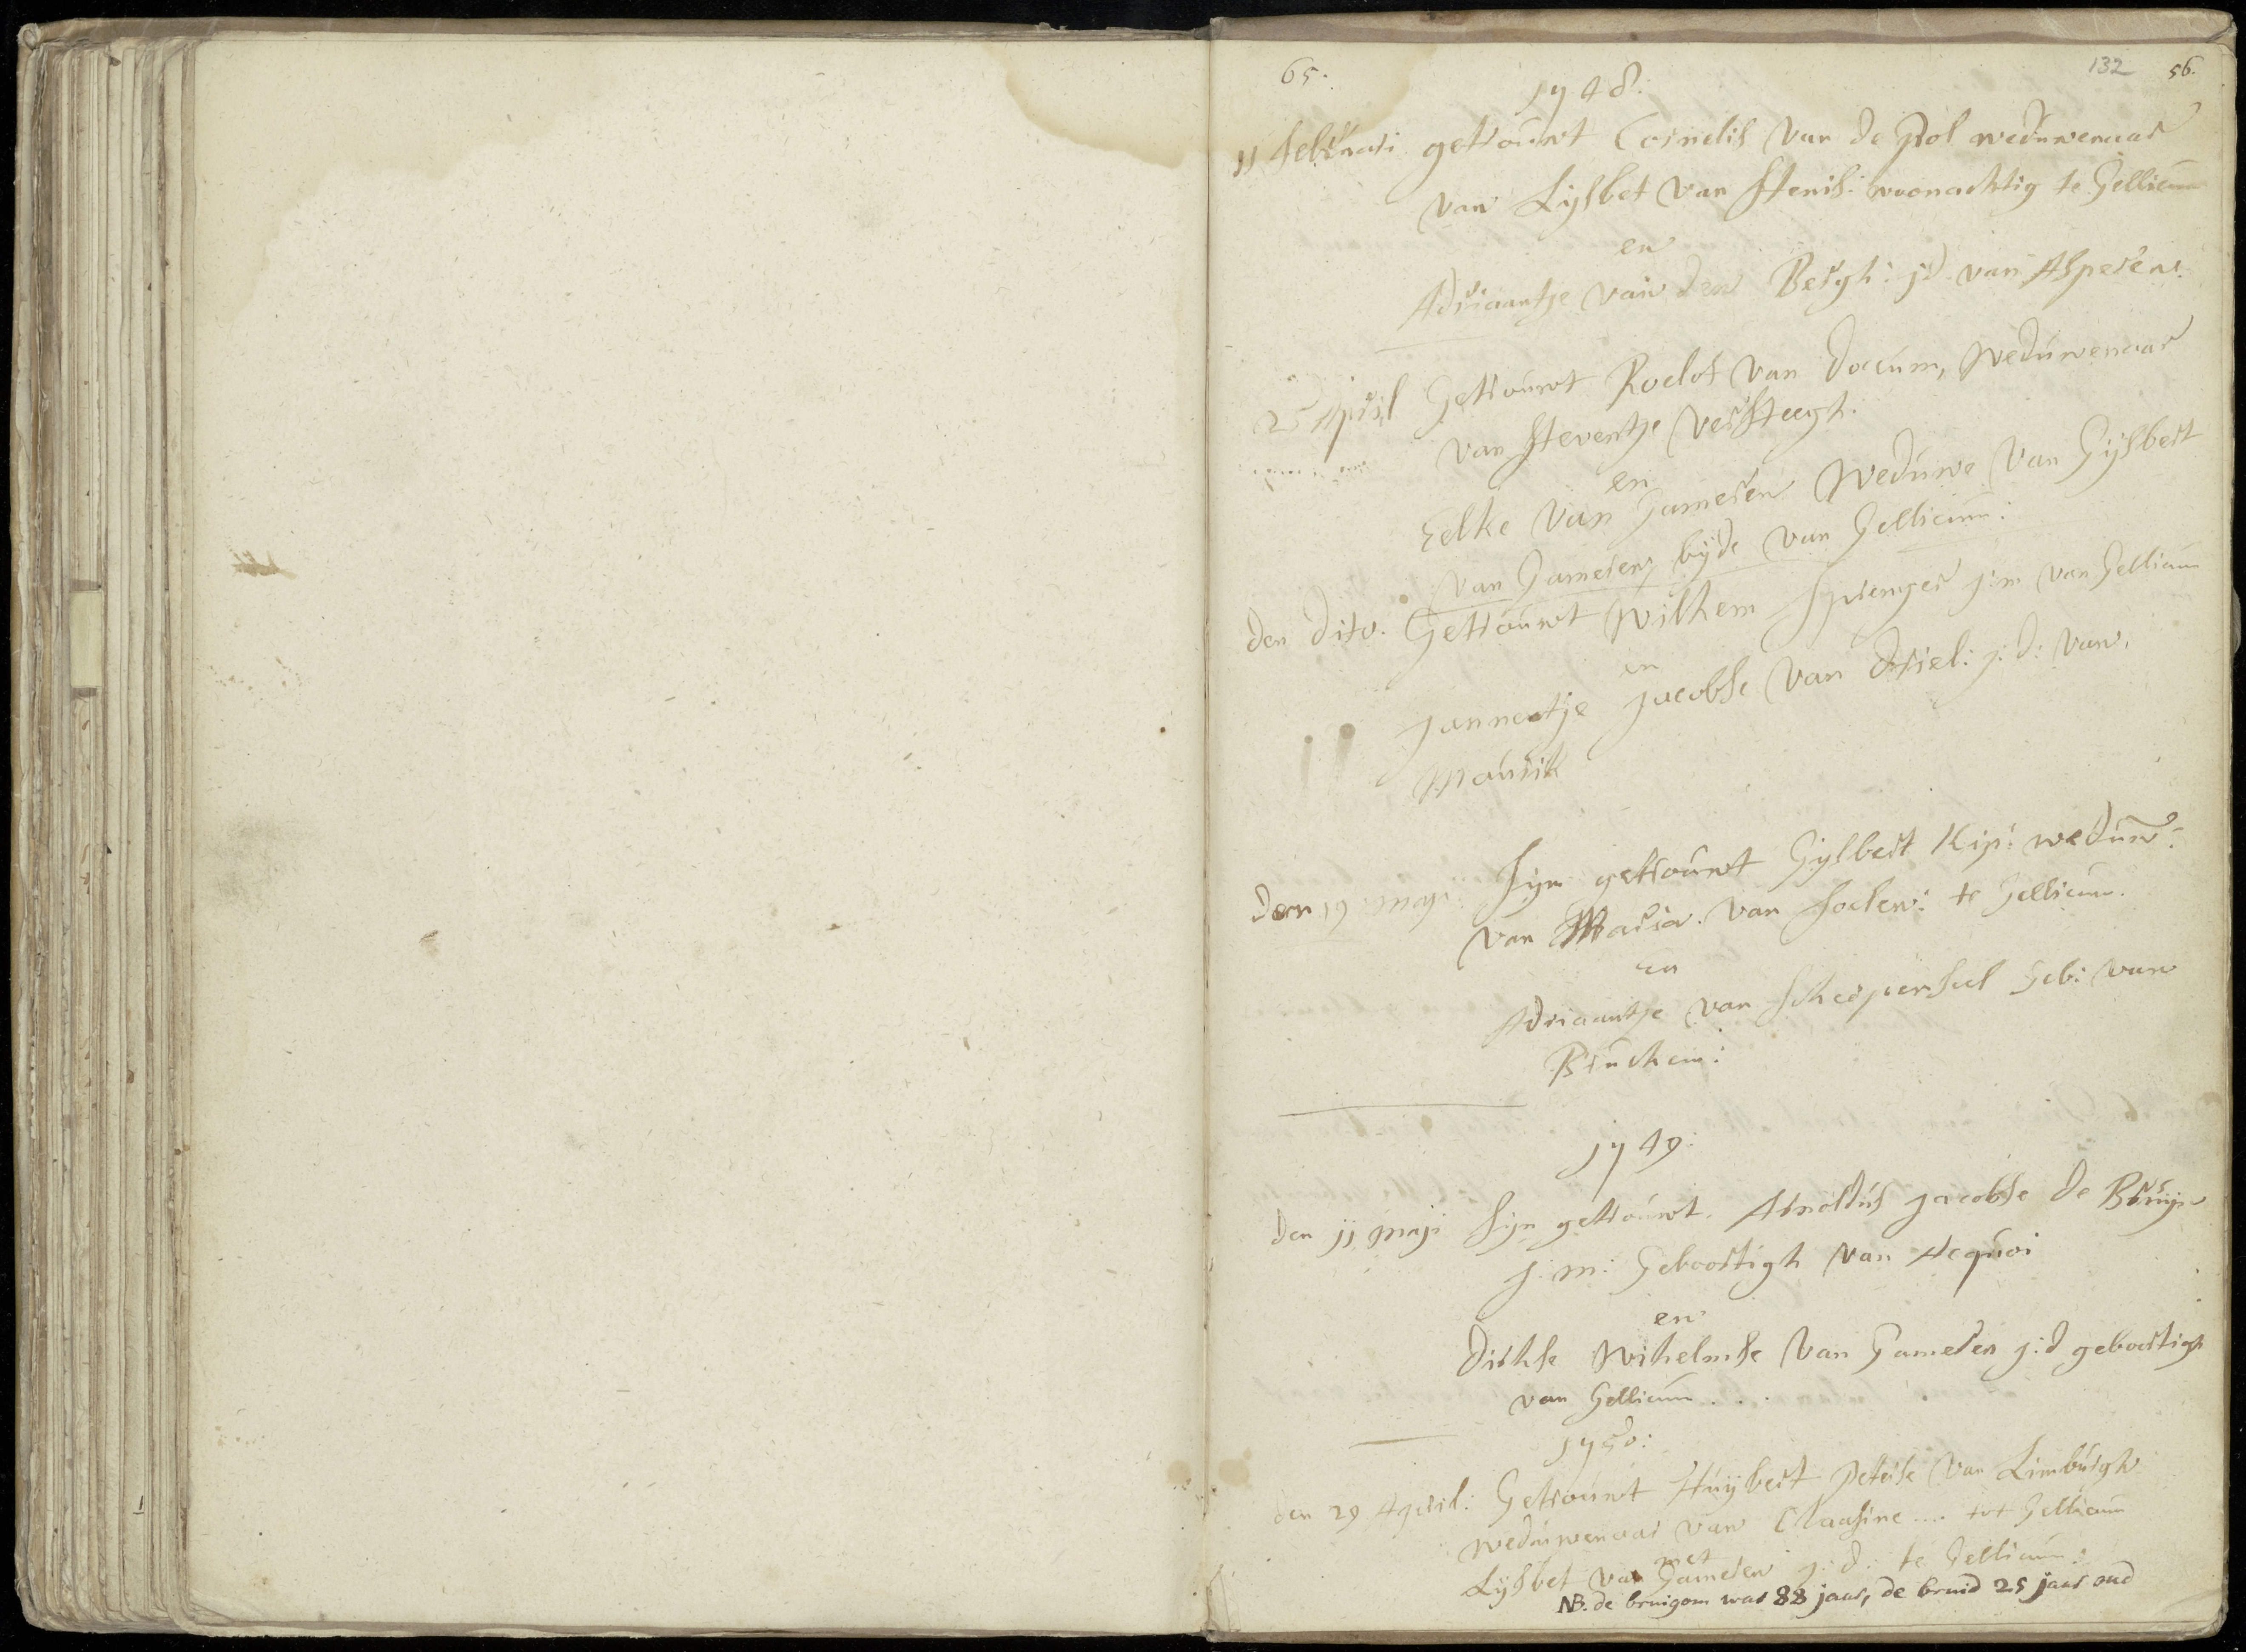 65.
132 56.
1748:
11 februari getrouwt Cornelis van de Pol weduwenaar
van Lijsbet van Stenis: woonachtig te Gellicum
en
Adriaantje van den Bergh: jd van Asperen.
25 April Getrouwt Roelof van Doccum, Weduwenaar
van Steventje Versteegh.
en
Eelke van Gameren Weduwe van Gijsbert
van Gameren, byde van Gellicum:
den dito. Getrouwt Wilhem Sprenger j:m van Gellicum
en
Jannentje Jacobse van Driel: j: d: van.
Maurik
den 19 maji: Sijn getrouwt Gijsbert Kip: weduw:
van Maria van Soelen: te Gellicum.
en
Adriaantje van Scherpenseel Geb: van
Bruchem:
1749:
den 11 maji Sijn getrouwt. Arnoldus Jacobse de Bruijn
J: m: Geboortigh van Acquoi
en
Dirkse Wihelmse van Gameren j:d geboortigh
van Gellicum . . .
1750:
den 29 April: Getrouwt Huijbert Peterse van Limburgh
weduwenaar van Claasine .... tot Gellicum
met
Lijsbet van Gameren j: d: te Gellicum:
NB. de bruigom was 88 jaar, de bruid 25 jaar oud